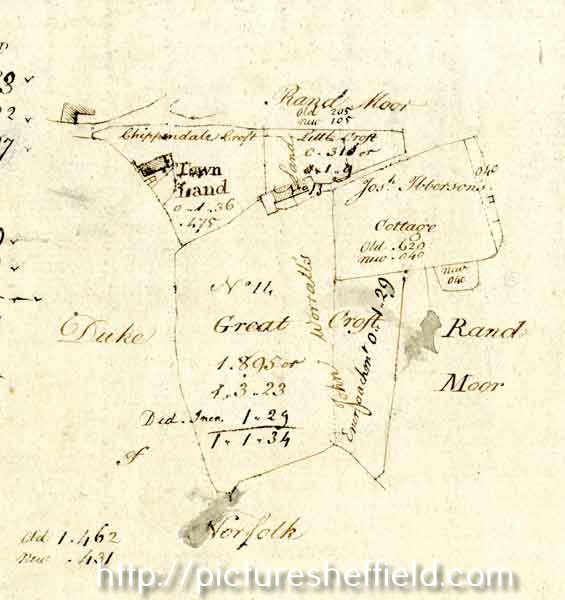 Rand Moor
Old 205
New 105
Chippendale Croft
Little Croft
0.310 or
0-1-9
Land
No 13
Town
Land
0-1-36
.475
Josh. Ibberson's
040
Cottage
Old .620
New .040
New
040
No 14
Great Croft
1.895 or
1.3.23
Ded. Incr. 1-29
1-1-34
John Worralls
Encroachmt 0-1-29
Duke
of
Norfolk
Rand
Moor
Old 1.462
New .431
http://picturesheffield.com